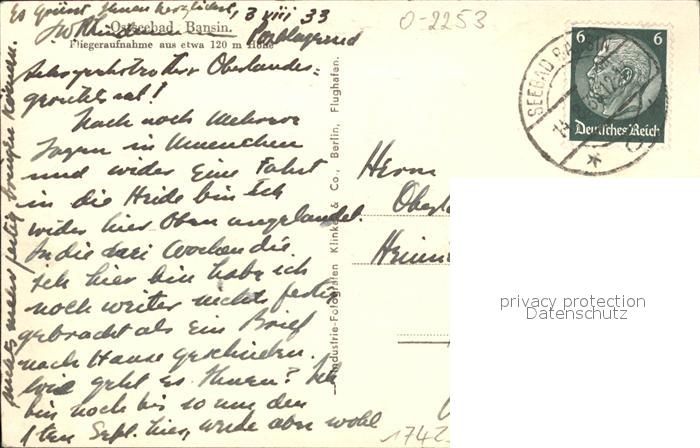 Es Grüsst Ihnen herzlichst, 3 VIII 33
O-2253
Ostseebad Bansin.
Fliegeraufnahme aus etwa 120 m Höhe
Postlagernd
Sehr geehrter Herr Oberlandes=
gerichtsrat!
Nach noch Mehrere
Tagen in Muenchen
und wider Eine Fahrt
in die Heide bin Ich
wider hier Oben angelandet.
In die drei Wochen die
ich hier bin habe ich
noch weiter nichts fertig
gebracht als Ein Brief
nach Hause geschrieben.
Wie geht es Ihnen? Ich
bin noch bis 10 um den
1ten Sept. hier, werde aber wohl
nichts mehr fertig bringen Können.
Industrie-Fotografen Klinke & Co., Berlin, Flughafen.
SEEBAD BANSIN
6 6
Deutsches Reich
Herrn
Heinri
privacy protection
Datenschutz
1742